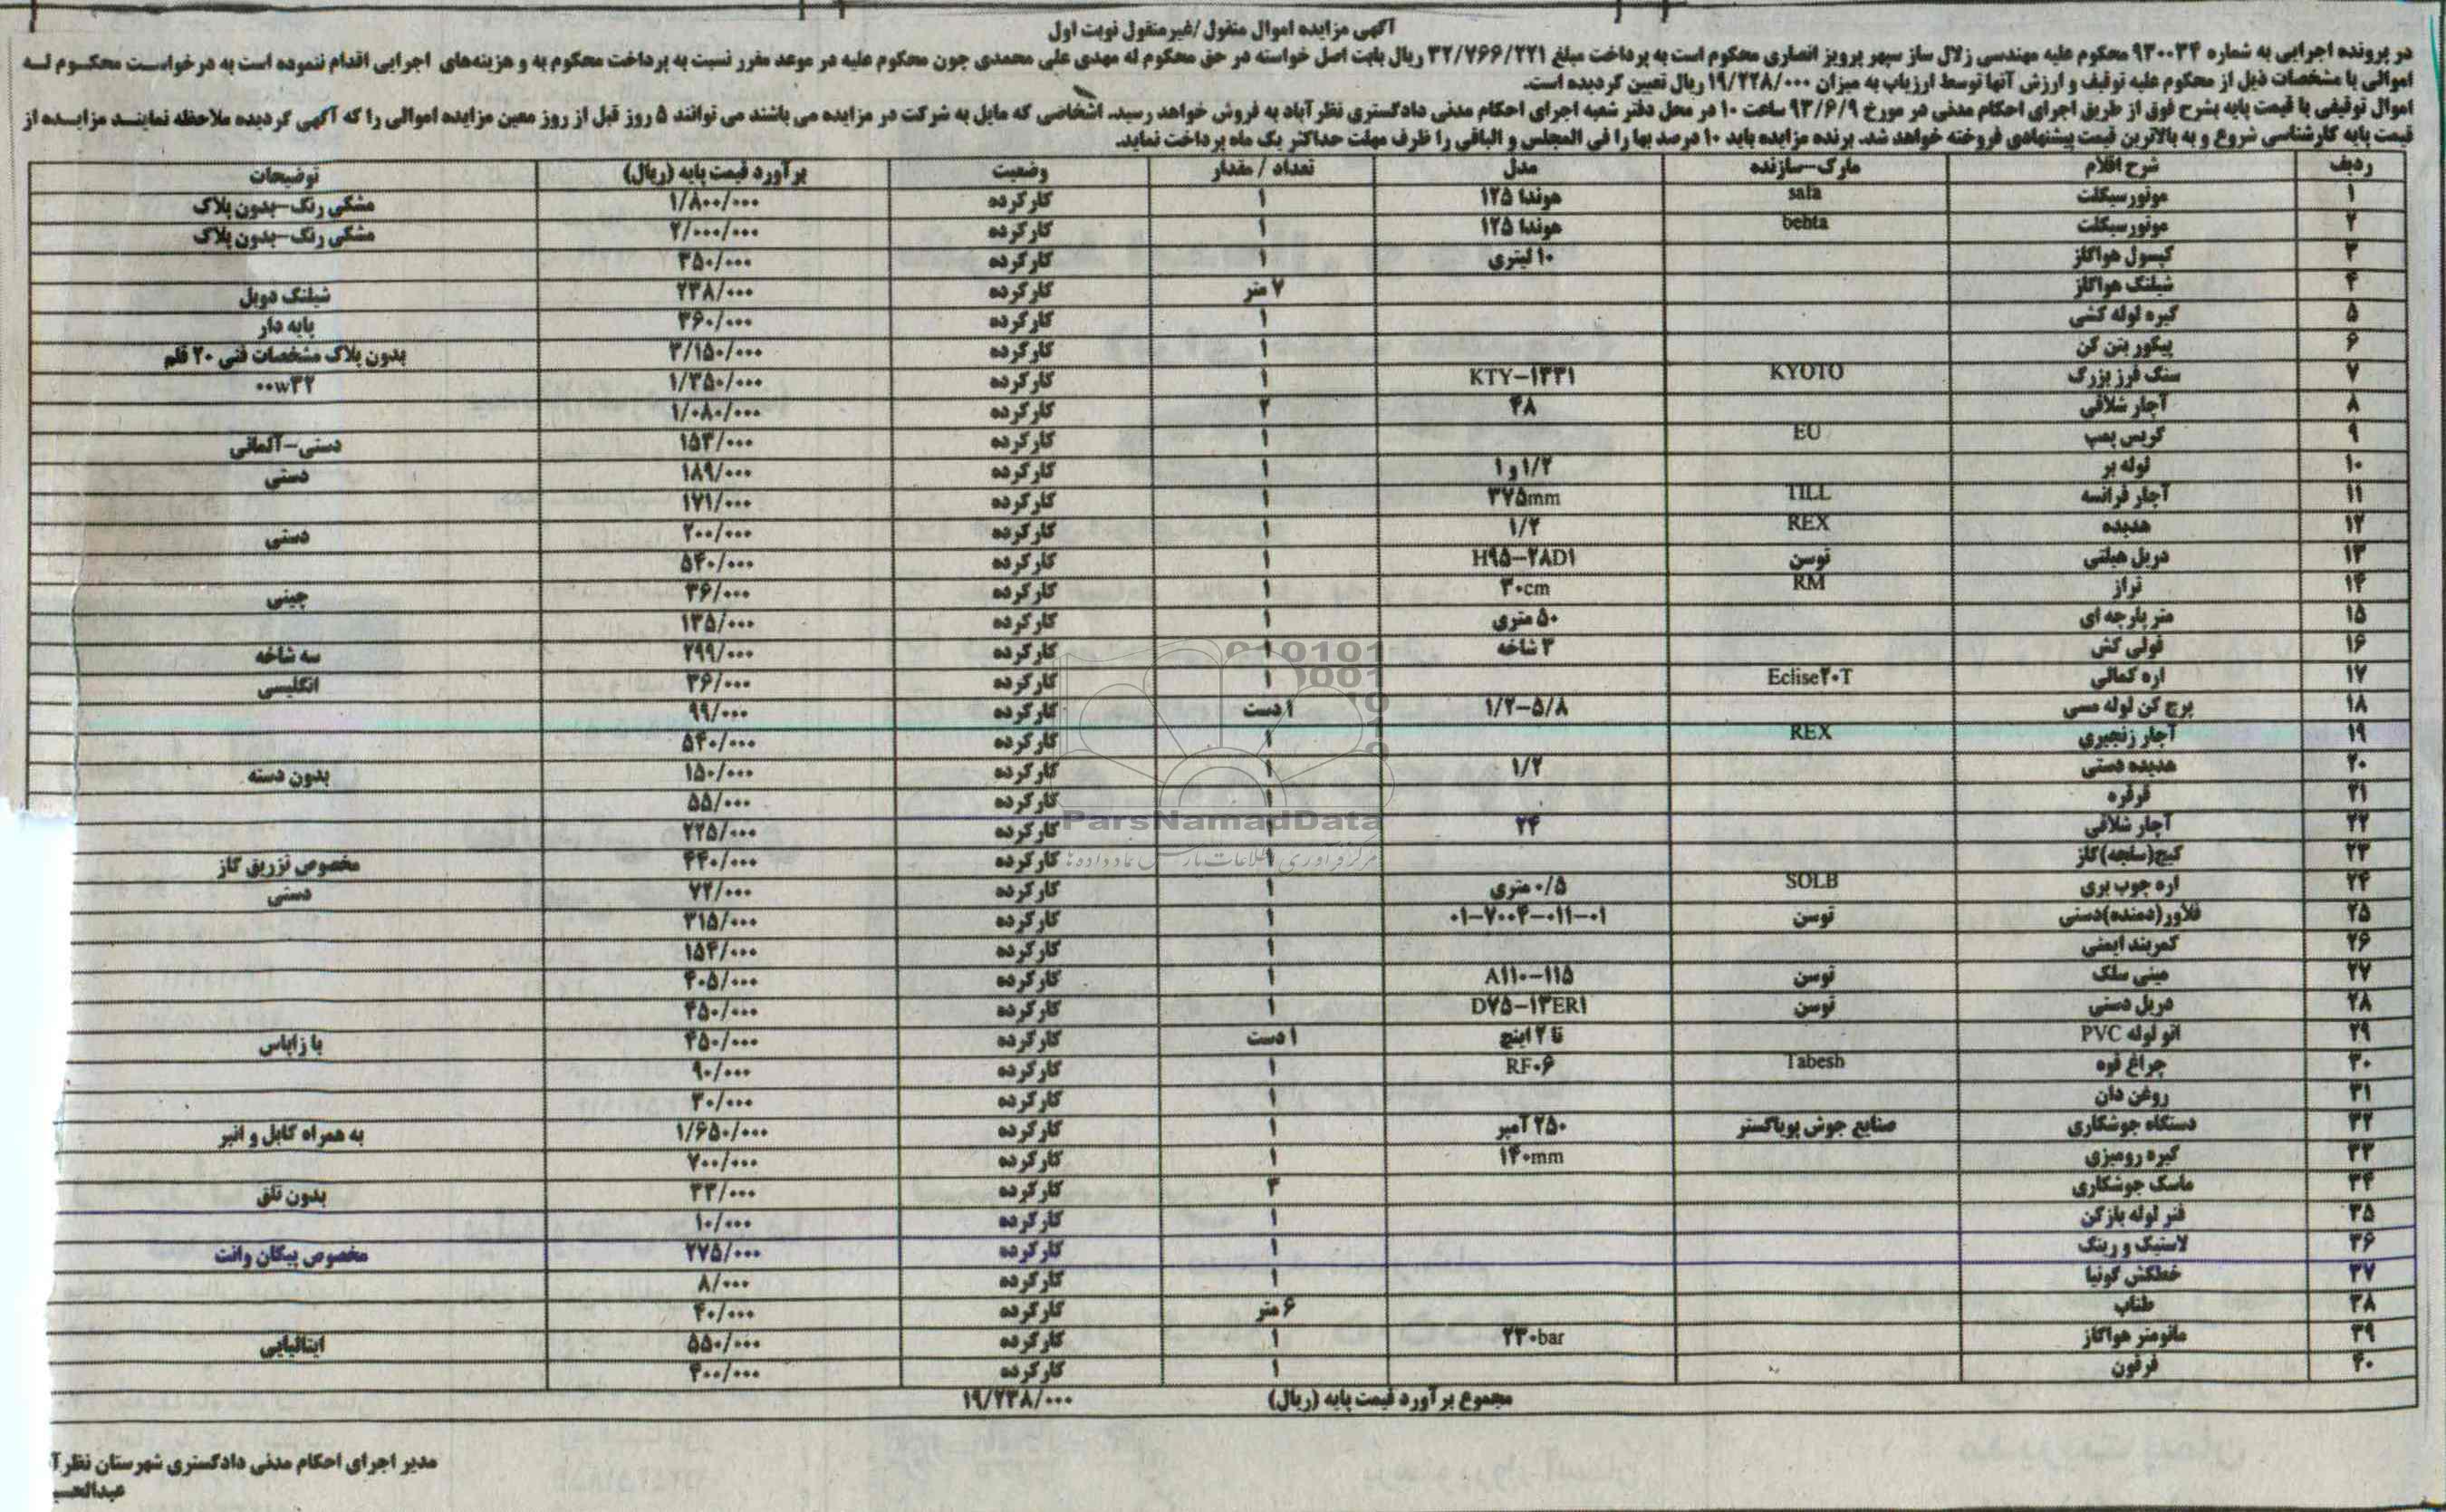 آگهی مزایده اموال منقول/غیرمنقول نوبت اول
در پرونده اجرایی به شماره ۹۳۰۰۳۴ محکوم علیه مهندسی زلال ساز سپهر پرویز انصاری محکوم است به پرداخت مبلغ ۳۲/۷۶۶/۲۲۱ ریال بابت اصل خواسته در حق محکوم له مهدی علی محمدی چون محکوم علیه در موعد مقرر نسبت به پرداخت محکوم به و هزینه‌های اجرایی اقدام ننموده است به درخواست محکوم له
اموالی با مشخصات ذیل از محکوم علیه توقیف و ارزش آنها توسط ارزیاب به میزان ۱۹/۲۳۸/۰۰۰ ریال تعیین گردیده است.
اموال توقیفی با قیمت پایه بشرح فوق از طریق اجرای احکام مدنی در مورخ ۹۳/۶/۹ ساعت ۱۰ در محل دفتر شعبه اجرای احکام مدنی دادگستری نظرآباد به فروش خواهد رسید. اشخاصی که مایل به شرکت در مزایده می باشند می توانند ۵ روز قبل از روز معین مزایده اموالی را که آگهی گردیده ملاحظه نمایند مزایده از
قیمت پایه کارشناسی شروع و به بالاترین قیمت پیشنهادی فروخته خواهد شد. برنده مزایده باید ۱۰ درصد بها را فی المجلس و الباقی را ظرف مهلت حداکثر یک ماه پرداخت نماید.
ردیف شرح اقلام مارک-سازنده مدل تعداد / مقدار وضعیت برآورد قیمت پایه (ریال) توضیحات
۱ موتورسیکلت safa هوندا ۱۲۵ ۱ کارکرده ۱/۸۰۰/۰۰۰ مشکی رنگ-بدون پلاک
۲ موتورسیکلت behta هوندا ۱۲۵ ۱ کارکرده ۲/۰۰۰/۰۰۰ مشکی رنگ-بدون پلاک
۳ کپسول هواگاز ۱۰ لیتری ۱ کارکرده ۳۵۰/۰۰۰
۴ شیلنگ هواگاز ۷ متر کارکرده ۲۳۸/۰۰۰ شیلنگ دوبل
۵ گیره لوله کشی ۱ کارکرده ۳۶۰/۰۰۰ پایه دار
۶ پیکور بتن کن ۱ کارکرده ۳/۱۵۰/۰۰۰ بدون پلاک مشخصات فنی ۲۰ قلم
۷ سنگ فرز بزرگ KYOTO KTY-۱۲۳۱ ۱ کارکرده ۱/۳۵۰/۰۰۰ ۰۰w۳۲
۸ آچار شلاقی ۴۸ ۲ کارکرده ۱/۰۸۰/۰۰۰
۹ گریس پمپ EU ۱ کارکرده ۱۵۳/۰۰۰ دستی-آلمانی
۱۰ لوله بر ۱/۲ و ۱ ۱ کارکرده ۱۸۹/۰۰۰ دستی
۱۱ آچار فرانسه TILL ۳۷۵mm ۱ کارکرده ۱۷۱/۰۰۰
۱۲ حدیده REX ۱/۲ ۱ کارکرده ۲۰۰/۰۰۰ دستی
۱۳ دریل هیلتی توسن H۹۵-۲AD۱ ۱ کارکرده ۵۴۰/۰۰۰
۱۴ تراز RM ۳۰cm ۱ کارکرده ۳۶/۰۰۰ چینی
۱۵ متر پارچه ای ۵۰ متری ۱ کارکرده ۱۳۵/۰۰۰
۱۶ فولی کش ۳ شاخه ۱ کارکرده ۲۹۹/۰۰۰ سه شاخه
۱۷ اره کمانی Eclise۲۰T ۱ کارکرده ۳۶/۰۰۰ انگلیسی
۱۸ پرچ کن لوله مسی ۱/۲-۵/۸ ۱دست کارکرده ۹۹/۰۰۰
۱۹ آچار زنجیری REX ۱ کارکرده ۵۴۰/۰۰۰
۲۰ حدیده دستی ۱/۲ ۱ کارکرده ۱۵۰/۰۰۰ بدون دسته
۲۱ قرقره ۱ کارکرده ۵۵/۰۰۰
۲۲ آچار شلاقی ۲۴ ۱ کارکرده ۲۲۵/۰۰۰
۲۳ گیج(سنجه)گاز ۱ کارکرده ۴۴۰/۰۰۰ مخصوص تزریق گاز
۲۴ اره چوب بری SOLB ۰/۵ متری ۱ کارکرده ۷۲/۰۰۰ دستی
۲۵ فلاور(دمنده)دستی توسن ۰۱-۷۰۰۴-۰۱۱-۰۱ ۱ کارکرده ۳۱۵/۰۰۰
۲۶ کمربند ایمنی ۱ کارکرده ۱۵۴/۰۰۰
۲۷ مینی سنگ توسن A۱۱۰-۱۱۵ ۱ کارکرده ۴۰۵/۰۰۰
۲۸ دریل دستی توسن D۷۵-۱۳ER۱ ۱ کارکرده ۴۵۰/۰۰۰
۲۹ اتو لوله PVC تا ۲ اینچ ۱دست کارکرده ۴۵۰/۰۰۰ با زاپاس
۳۰ چراغ قوه Tabesh RF۰۶ ۱ کارکرده ۹۰/۰۰۰
۳۱ روغن دان ۱ کارکرده ۳۰/۰۰۰
۳۲ دستگاه جوشکاری صنایع جوش پویاگستر ۲۵۰ آمپر ۱ کارکرده ۱/۶۵۰/۰۰۰ به همراه کابل و انبر
۳۳ گیره رومیزی ۱۴۰mm ۱ کارکرده ۷۰۰/۰۰۰
۳۴ ماسک جوشکاری ۳ کارکرده ۳۳/۰۰۰ بدون تلق
۳۵ فنر لوله بازکن ۱ کارکرده ۱۰/۰۰۰
۳۶ لاستیک و رینگ ۱ کارکرده ۲۷۵/۰۰۰ مخصوص پیکان وانت
۳۷ خطکش گونیا ۱ کارکرده ۸/۰۰۰
۳۸ طناب ۶ متر کارکرده ۴۰/۰۰۰
۳۹ مانومتر هواگاز ۲۳۰bar ۱ کارکرده ۵۵۰/۰۰۰ ایتالیایی
۴۰ فرغون ۱ کارکرده ۴۰۰/۰۰۰
مجموع برآورد قیمت پایه (ریال) ۱۹/۲۳۸/۰۰۰
ParsNamadData
مرکز فرآوری اطلاعات پارس نماد داده ها
مدیر اجرای احکام مدنی دادگستری شهرستان نظرآ
عبدالحسی